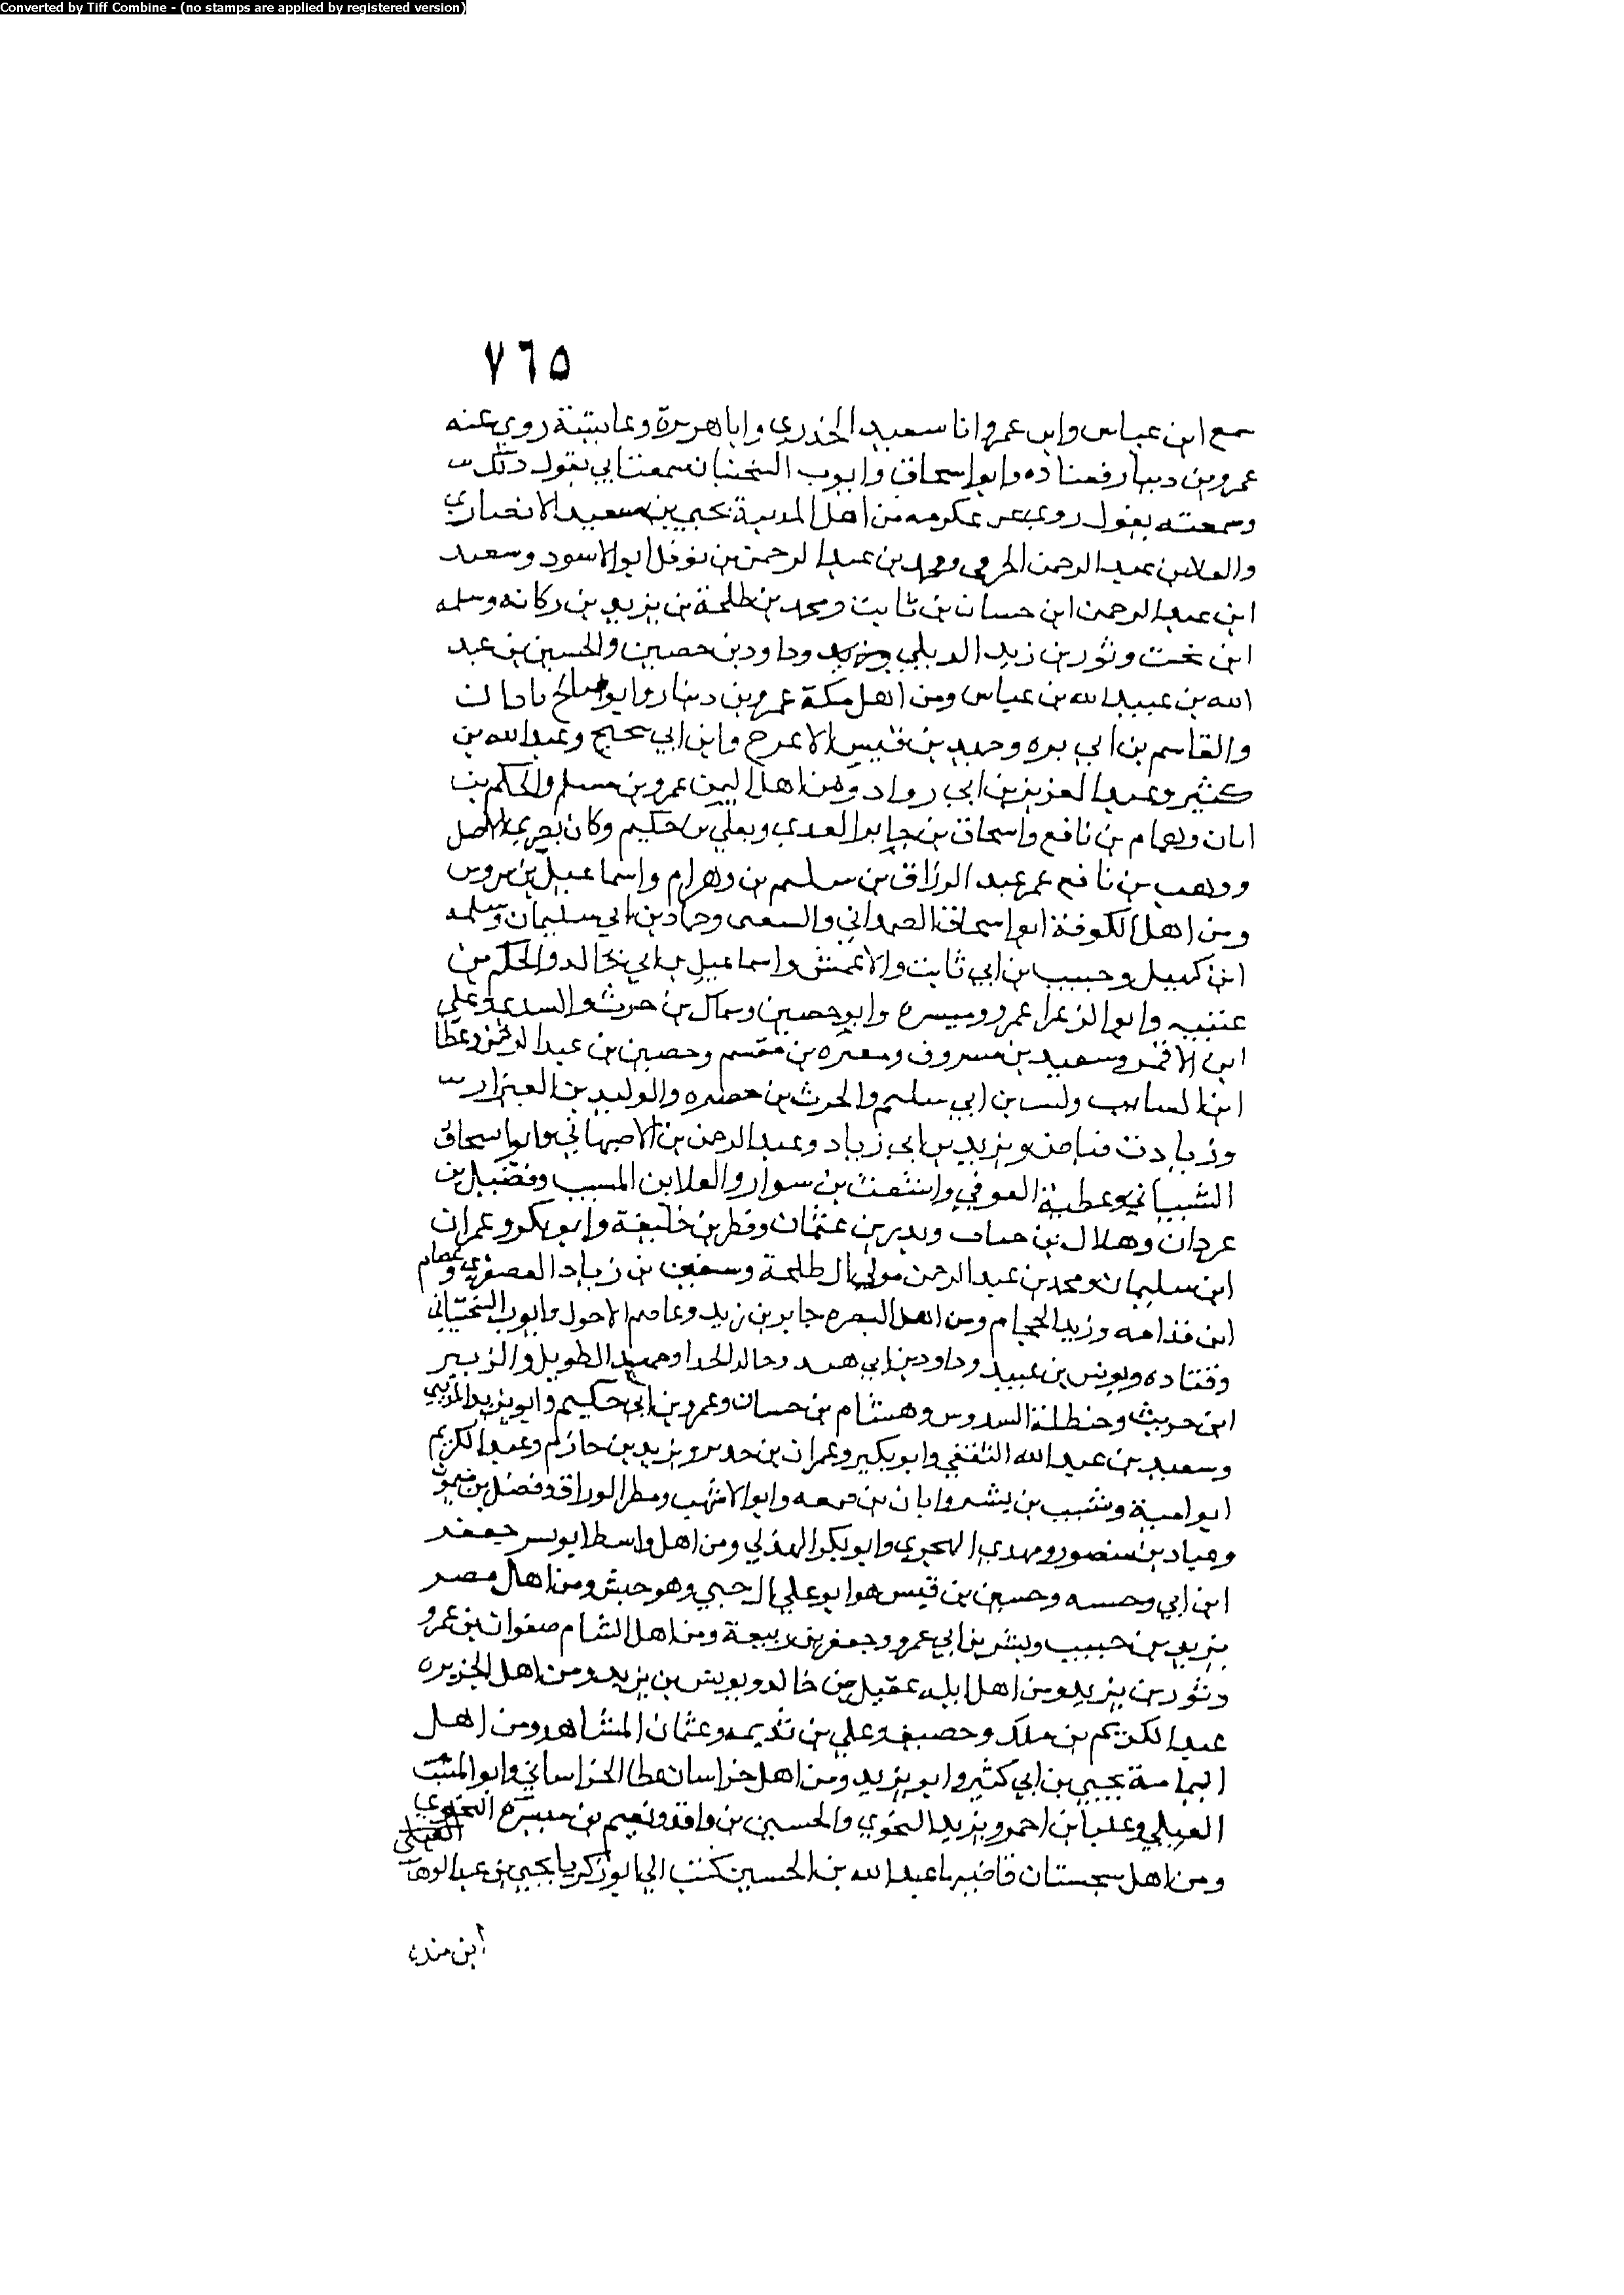 Converted by Tiff Combine - (no stamps are applied by registered version)
٧٦٥
سمع ابن عباس وابن عمر وابا سعيد الخدري واباهريرة وعايشة روي عنه
عمرو بن دينار وقتاده وابو اسحاق وايوب السختيان سمعت ابي يقول ذلك
وسمعته يقول روي عن عكرمه من اهل المدينة يحيي بن سعيد الانصاري
والعلا بن عبد الرحمن الحرمي ومحمد بن عبد الرحمن بن نوفل ابو الاسود وسعيد
ابن عبد الرحمن ابن حسان بن ثابت ومحمد بن طلحة بن يزيد بن ركانه وسلمه
ابن بخت وثور بن زيد الديلي وداود بن حصين والحسين بن عبد
الله بن عبيد الله بن عباس ومن اهل مكة عمرو بن دينار وابو صالح باذان
والقاسم بن ابي بره وحميد بن قيس الاعرج وابن ابي نجيح وعبد الله بن
كثير وعبد العزيز بن ابي رواد ومن اهل اليمن عمرو بن مسلم والحكم بن
ابان وهمام بن نافع واسحاق بن جابر العدي ويعلي بن حكيم وكان بصري الاصل
ووهب بن نافع عم عبد الرزاق بن سلم بن وهرام واسماعيل بن سروس
ومن اهل الكوفة ابو اسحاق الهمداني والسعبى وحماد بن ابي سليمان وسلمه
ابن كهيل وحبيب بن ابي ثابت والاعمش واسماعيل بن ابي خالد والحكم بن
عتيبه وابو الزعرا عمرو وميسره وابو حصين وسماك بن حرث والسدي وعلي
ابن الاقمر وسعيد بن مسروق ومغيره بن مقسم وحصين بن عبد الرحمن وعطا
ابن السايب وليث بن ابي سليم والحرث بن حصيره والوليد بن العيزار
وزياد بن فياض ويزيد بن ابي زياد وعبد الرحمن بن الاصبهاني وابو اسحاق
الشيباني وعطية العوفي واشعث بن سوار والعلا بن المسيب وفضيل بن
عزوان وهلال بن خباب وبدر بن عثمان وفطر بن خليفة وابو بكر وعمران
ابن سليمان ومحمد بن عبد الرحمن مولي ال طلحة وسفين بن زياد العصفري وعصام
ابن قدامه وزيد الحجام ومن اهل البصره جابر بن زيد وعاصم الاحول وايوب السختياني
وقتاده ويونس بن عبيد وداود بن ابي هند وخالد الحدا وحميد الطويل والزبير
ابن حريث وحنطلة السدوس وهشام بن حسان وعمرو بن ابي حكيم وابو يزيد المديني
وسعيد بن عبيد الله الثقفي وابو بكير وعمران بن حدير ويزيد بن حازم وعبد الكريم
ابو امية وشبيب بن بشر وابان بن صمعه وابو الاشهب ومطر الوراق وفضل بن ميمون
وعباد بن منصور ومهدي الهجري وابو بكر الهذلي ومن اهل واسط ابو بسر جعفر
ابن ابي وحسيه وحسين بن قيس هو ابو علي الرحبي وهو حبش ومن اهل مصر
يزيد بن حبيب وبشر بن ابي عمرو وجعفر بن ربيعة ومن اهل الشام صفوان بن عمرو
وثور بن يزيد ومن اهل ايله عقيل بن خالد ويونس بن يزيد ومن اهل الجزيره
عبد الكريم بن ملك وخصيف وعلي بن بذيمه وعثمان المشاهد ومن اهل
اليمامة يحيي بن ابي كثير وابو يزيد ومن اهل خراسان عطا الخراساني وابو المنيب
العبلي وعلبا بن احمر ويزيد النحوي والحسين بن واقد ونعيم بن ميسرة النحوي
ومن اهل سجستان قاضيها عبد الله بن الحسين كتب الي ابو زكريا يحيي بن عبد الوهاب
ابن منده